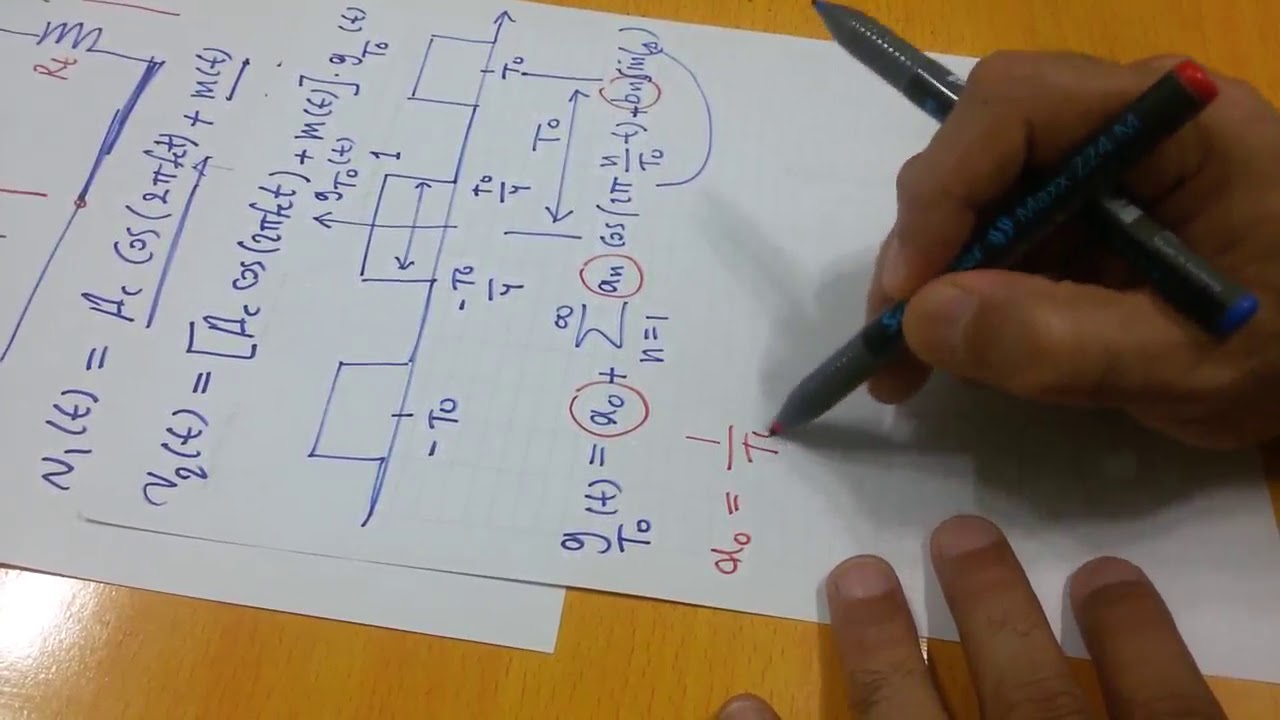 Rt
v₁(t) = Ac cos(2πfct) + m(t)
v₂(t) = [Ac cos(2πfct) + m(t)] · g_T₀(t)
g_T₀(t)
1
-T₀ -T₀/4 T₀/4 T₀
T₀
g_T₀(t) = a₀ + ∑_{n=1}^{∞} an cos(2π n/T₀ t) + bn sin(
a₀ = 1/T
Maxx 224-M